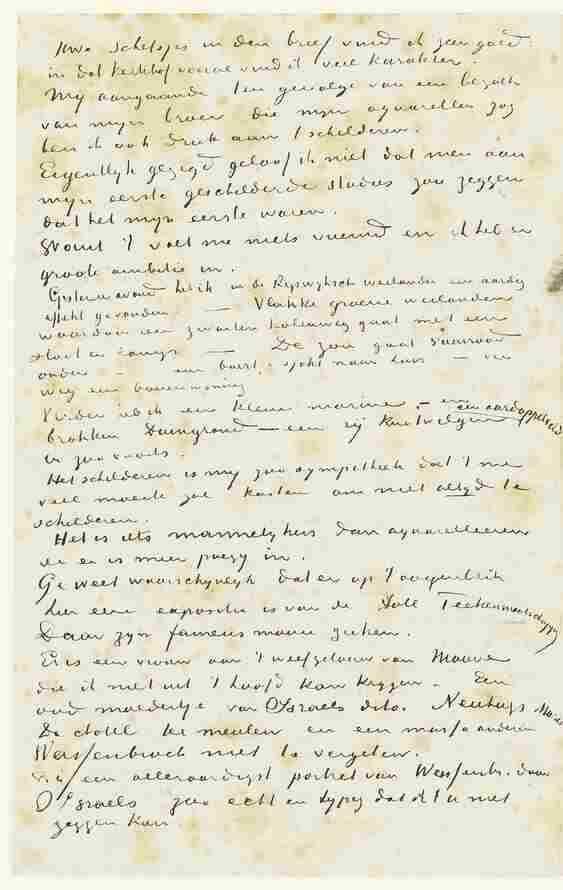 Uwe schetsjes in den brief vind ik zeer goed.
in dat kerkhof vooral vind ik veel karakter.
Mij aangaande ten gevolge van een bezoek
van mijn broer die mijn aquarellen zag
ben ik ook druk aan 't schilderen.
Eigentlyk gezegd geloof ik niet dat men aan
mijn eerste geschilderde studies zou zeggen
dat het mijn eerste waren.
Want 't valt me niets vreemd en ik heb er
groote ambitie in.
Gisteren avond heb ik in de Ryswyksch weilanden een aardig
effekt gevonden — Vlakke groene weilanden
waardoor een zwarten kolenweg gaat met een
sloot er langs — De zon gaat vuurrood
onder — een boert sjokt naar huis — 
weg een boerenwoning
Verder heb ik een kleine marine — een
brokken Duingrond — een rij Knotwilgen een aardappelveld
en zoo voorts.
Het schilderen is mij zoo sympathiek dat 't me
veel moeite zal kosten om niet altyd te
schilderen.
Het is iets mannelykers dan aquarelleeren
en er is meer poezy in.
Ge weet waarschynlyk dat er op 't oogenblik
hier eene expositie is van de Holl Teekenmaatschappy
Daar zyn fameus mooie zaken.
Er is een vrouw aan 't weefgetouw van Mauve
die ik niet uit 't hoofd kan krygen. Een
oud moedertje van Israels dito. Neuhuys
De Bock ter meulen en een massa anderen
Weissenbruch niet te vergeten.
een alleraardigst portret van Weissenb. door
Israels zoo echt en typig dat ik 't U niet
zeggen kan.